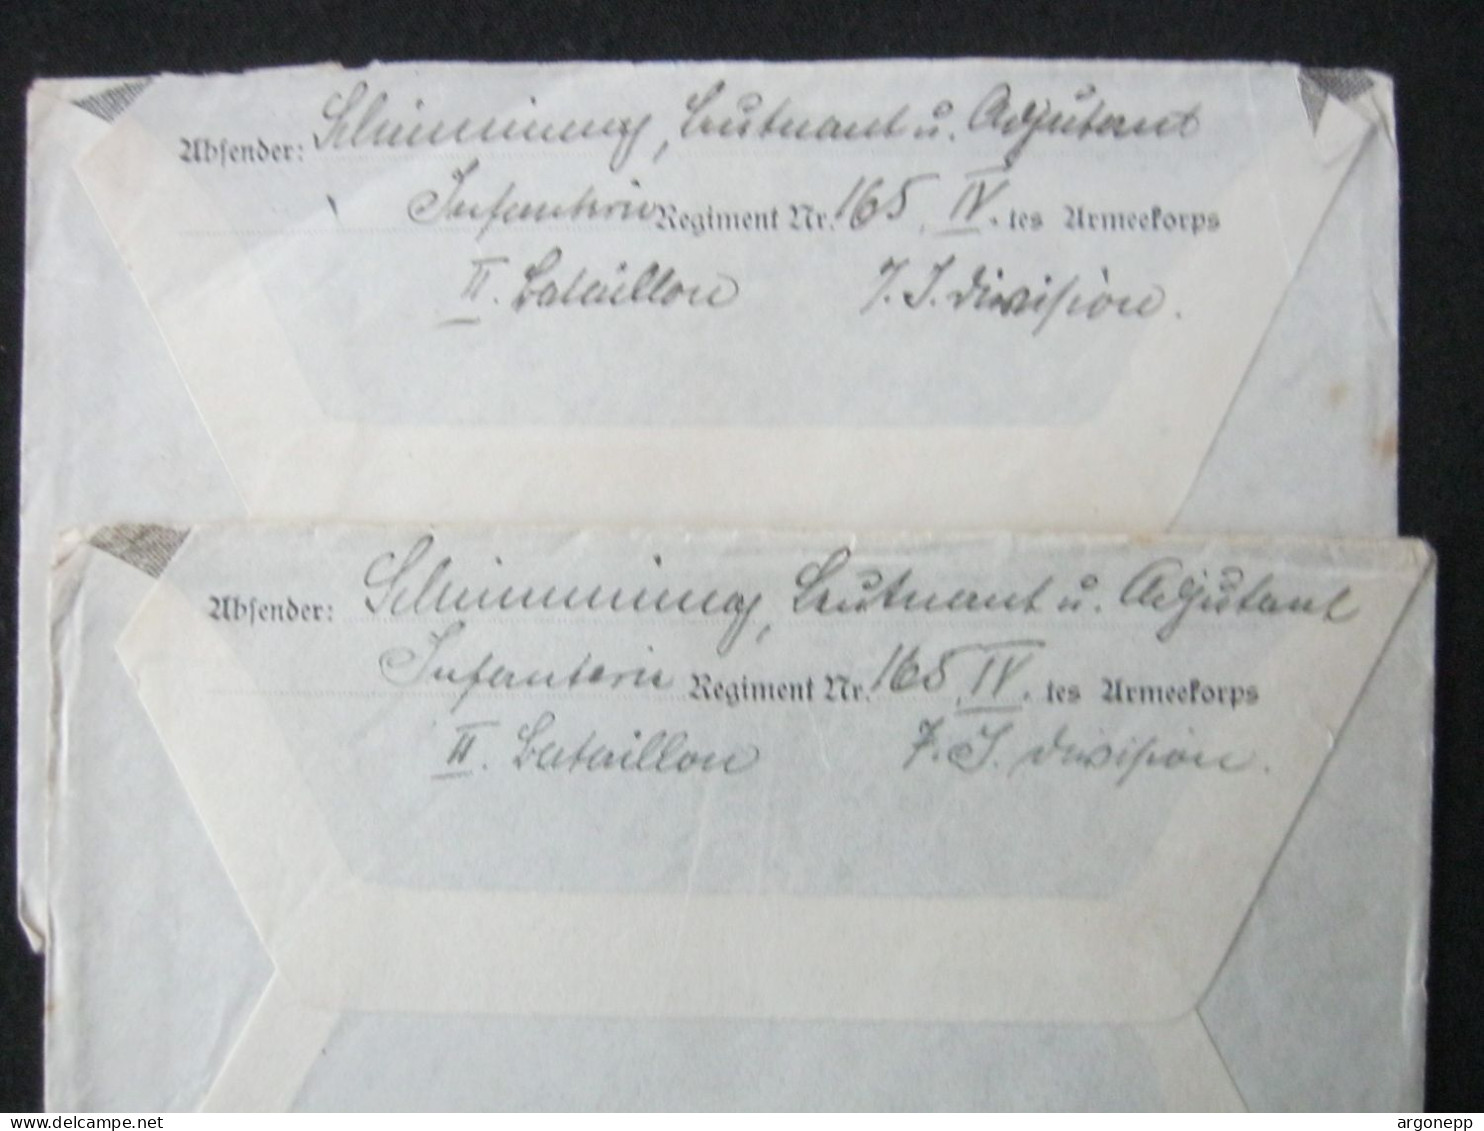 Absender: Schimming, Leutnant u. Adjutant
Infanterie Regiment Nr. 165, IV. tes Armeekorps
II. Bataillon 7. I. Division.
Absender: Schimming, Leutnant u. Adjutant
Infanterie Regiment Nr. 165, IV. tes Armeekorps
II. Bataillon 7. I. Division.
argonepp